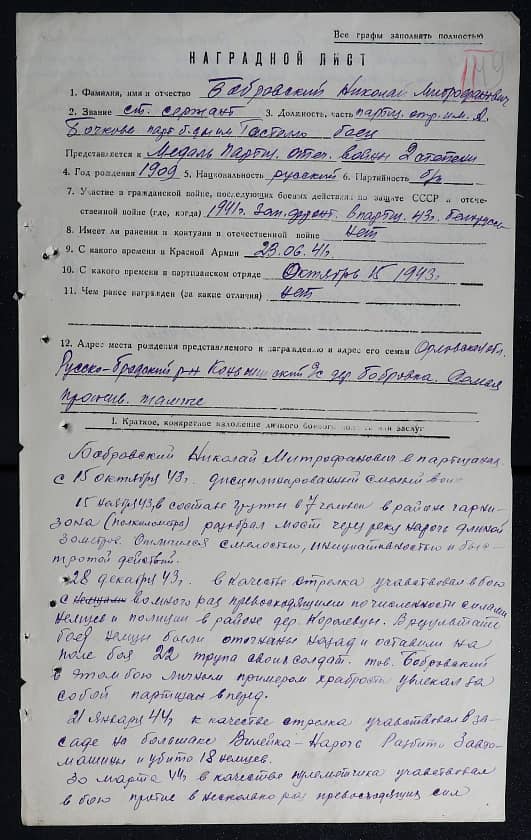 Все графы заполнять полностью
НАГРАДНОЙ ЛИСТ
1. Фамилия, имя и отчество Бобровский Николай Митрофанович
2. Звание ст. сержант 3. Должность, часть партиз. отр. им. А.
Бочкова парт. б. им Гастелло боец
Представляется к Медаль Партиз. отеч. войны 2 степени
4. Год рождения 1909 5. Национальность русский 6. Партийность б/п
7. Участие в гражданской войне, последующих боевых действиях по защите СССР и отече-
ственной войне (где, когда) 1941г. Зап. фронт. в парти. 43г. Белорусси
8. Имеет ли ранения и контузии в отечественной войне нет
9. С какого времени в Красной Армии 23.06.41г.
10. С какого времени в партизанском отряде Октябрь 15 1943г
11. Чем ранее награжден (за какие отличия) нет
12. Адрес места рождения представляемого к награждению и адрес его семьи Орловская обл.
Русско-Бродский р-н с/с дер. Бобровка. Семья
прожив. там же
I. Краткое, конкретное изложение личного боевого или заслуг
Бобровский Николай Митрофанович в партизанах
с 15 октября 43г. дисциплинированный смелый
15 ноября 43, в составе группы в 7 человек в районе гарни-
зона (полкилометра) разобрал мост через реку Нарочь длиной
30 метров. Отличился смелостью, инициативностью и быс-
тротой действий.
28 декабря 43г. в качестве стрелка учавствовал в бою
с немцами во много раз превосходящими по численности силами
немцев и полиции в районе дер. Королевцы. В результате
боев немцы были отогнаны назад и оставили на
поле боя 22 трупа своих солдат. тов. Бобровский
в этом бою личным примером храбрости увлекал за
собой партизан вперед.
21 января 44г к качестве стрелка учавствовал в за-
саде на большаке Вилейка-Нарочь Разбито 3 авто-
машины и убито 18 немцев.
30 марта 44г в качестве пулеметчика учавствовал
в бою против в несколько раз превосходящих сил